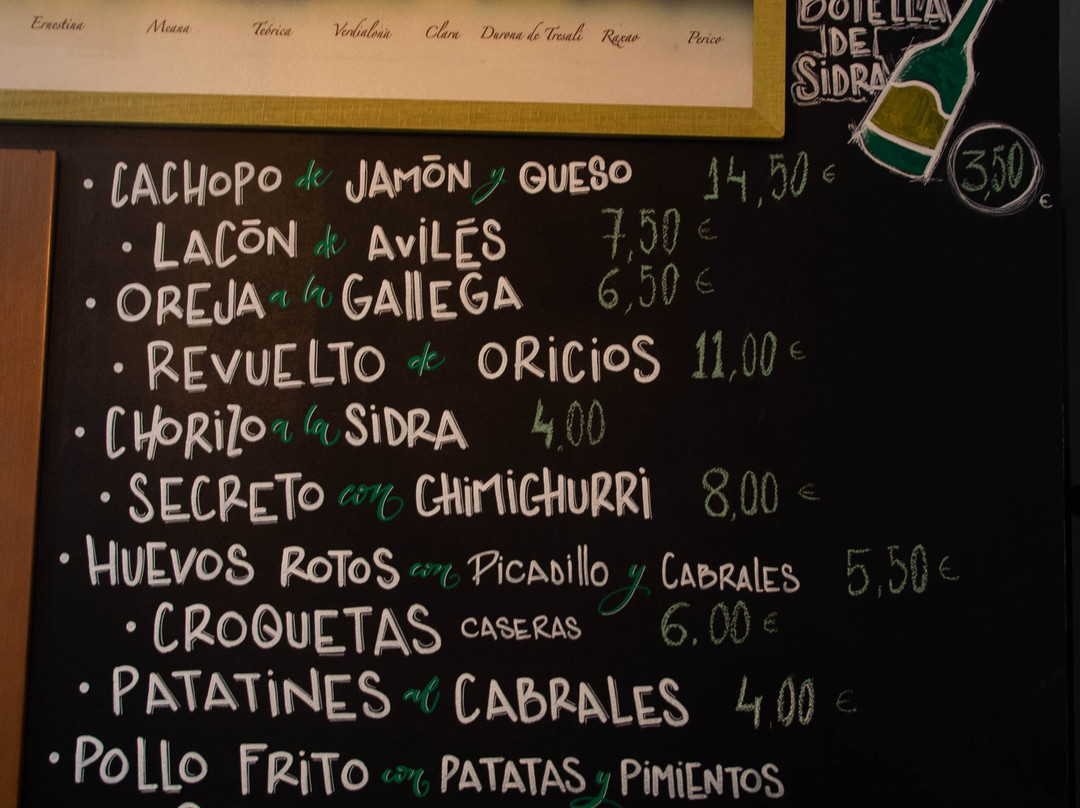 Ernestina Meana Teórica Verdialona Clara Durona de Tresali Raxao Perico
BOTELLA
DE
SIDRA
3,50 €
• CACHOPO de JAMÓN y QUESO 14,50 €
• LACÓN de AVILÉS 7,50 €
• OREJA a la GALLEGA 6,50 €
• REVUELTO de ORICIOS 11,00 €
• CHORIZO a la SIDRA 4.00
• SECRETO con CHIMICHURRI 8,00 €
• HUEVOS ROTOS con PICADILLO y CABRALES 5,50 €
• CROQUETAS CASERAS 6.00 €
• PATATINES al CABRALES 4,00 €
• POLLO FRITO con PATATAS y PIMIENTOS